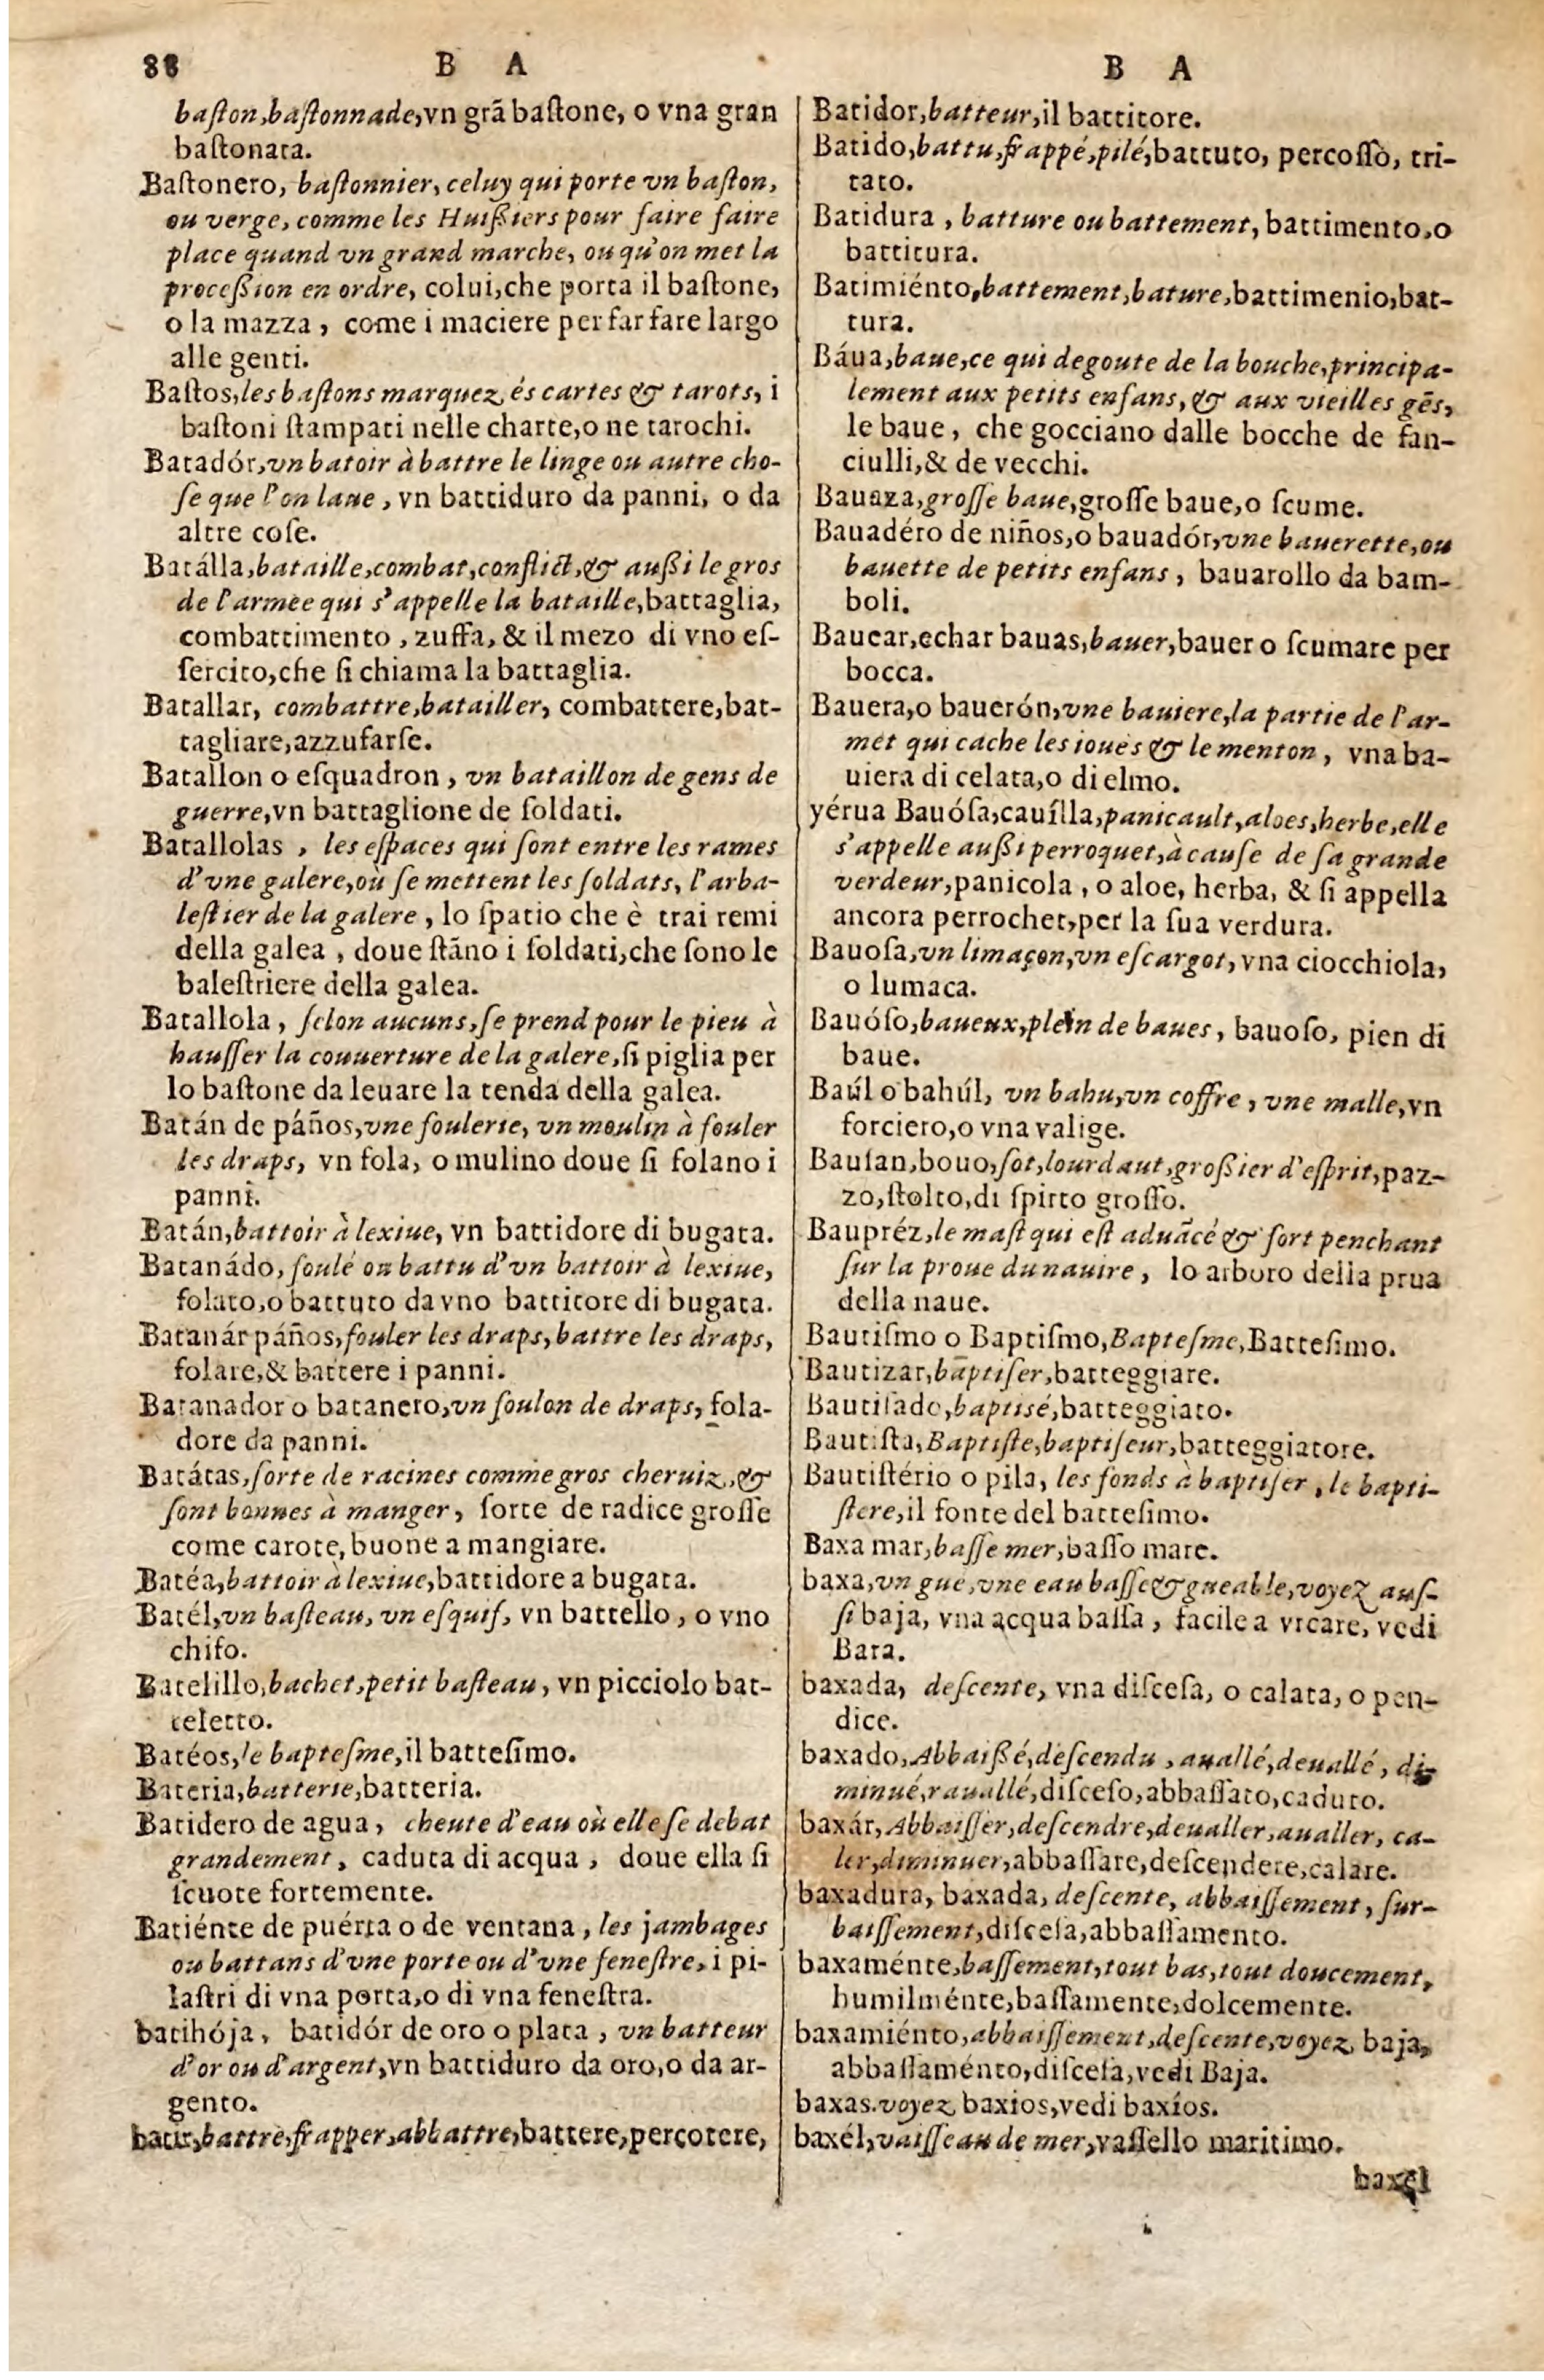 88 B A
baſton,baſtonnade,vn grã baſtone, o vna gran
baſtonata.
Baſtonero, baſtonnier, celuy qui porte vn baſton,
ou verge, comme les Huißiers pour faire faire
place quand vn grand marche, ou qu'on met la
proceßion en ordre, colui,che porta il baſtone,
o la mazza, come i maciere per far fare largo
alle genti.
Baſtos,les baſtons marquez és cartes & tarots, i
baſtoni ſtampati nelle charte,o ne tarochi.
Batadór,vn batoir à battre le linge ou autre cho-
ſe que l'on laue, vn battiduro da panni, o da
altre coſe.
Batálla,bataille,combat,conflict,& außi le gros
de l'armee qui s'appelle la bataille,battaglia,
combattimento, zuffa, & il mezo di vno eſ-
ſercito,che ſi chiama la battaglia.
Batallar, combattre,batailler, combattere,bat-
tagliare,azzufarſe.
Batallon o eſquadron, vn bataillon de gens de
guerre,vn battaglione de ſoldati.
Batallolas, les eſpaces qui ſont entre les rames
d'vne galere,où ſe mettent les ſoldats, l'arba-
leſtier de la galere, lo ſpatio che è trai remi
della galea, doue ſtãno i ſoldati,che ſono le
baleſtriere della galea.
Batallola, ſelon aucuns,ſe prend pour le pieu à
hauſſer la couuerture de la galere,ſi piglia per
lo baſtone da leuare la tenda della galea.
Batán de páños,vne foulerie, vn moulin à fouler
les draps, vn fola, o mulino doue ſi folano i
panni.
Batán,battoir à lexiue, vn battidore di bugata.
Batanádo, foulé ou battu d'vn battoir à lexiue,
folato,o battuto da vno battitore di bugata.
Batanár páños,fouler les draps,battre les draps,
folare,& battere i panni.
Batanador o batanero,vn foulon de draps, fola-
dore da panni.
Batátas,ſorte de racines comme gros cheruiz,&
ſont bonnes à manger, ſorte de radice groſſe
come carote,buone a mangiare.
Batéa,battoir à lexiue,battidore a bugata.
Batél,vn baſteau, vn eſquif, vn battello, o vno
chifo.
Batelillo,bachet,petit baſteau, vn picciolo bat-
teletto.
Batéos,le bapteſme,il batteſimo.
Bateria,batterie,batteria.
Batidero de agua, cheute d'eau où elle ſe debat
grandement, caduta di acqua, doue ella ſi
ſcuote fortemente.
Batiénte de puérta o de ventana, les jambages
ou battans d'vne porte ou d'vne feneſtre, i pi-
laſtri di vna porta,o di vna feneſtra.
batihója, batidór de oro o plata, vn batteur
d'or ou d'argent,vn battiduro da oro,o da ar-
gento.
batir,battre,frapper,abbattre,battere,percotere,
B A
Batidor,batteur,il battitore.
Batido,battu,frappé,pilé,battuto, percoſſo, tri-
tato.
Batidura, batture ou battement, battimento,o
battitura.
Batimiénto,battement,bature,battimenio,bat-
tura.
Báua,baue,ce qui degoute de la bouche,principa-
lement aux petits enfans,& aux vieilles gẽs,
le baue, che gocciano dalle bocche de fan-
ciulli,& de vecchi.
Bauaza,groſſe baue,groſſe baue,o ſcume.
Bauadéro de niños,o bauadór,vne bauerette,ou
bauette de petits enfans, bauarollo da bam-
boli.
Bauear,echar bauas,bauer,bauer o ſcumare per
bocca.
Bauera,o bauerón,vne bauiere,la partie de l'ar-
met qui cache les ioues & le menton, vna ba-
uiera di celata,o di elmo.
yérua Bauóſa,cauílla,panicault,aloes,herbe,elle
s'appelle außi perroquet,à cauſe de ſa grande
verdeur,panicola, o aloe, herba, & ſi appella
ancora perrochet,per la ſua verdura.
Bauoſa,vn limaçon,vn eſcargot, vna ciocchiola,
o lumaca.
Bauóſo,baueux,plein de baues, bauoſo, pien di
baue.
Baúl o bahúl, vn bahu,vn coffre, vne malle,vn
forciero,o vna valige.
Bauſan,bouo,ſot,lourdaut,großier d'eſprit,paz-
zo,ſtolto,di ſpirto groſſo.
Baupréz,le maſt qui eſt aduãcé & fort penchant
ſur la proue du nauire, lo arboro della prua
della naue.
Bautiſmo o Baptiſmo,Bapteſme,Batteſimo.
Bautizar,baptiſer,batteggiare.
Bautiſado,baptisé,batteggiato.
Bautiſta,Baptiſte,baptiſeur,batteggiatore.
Bautiſtério o pila, les fonds à baptiſer, le bapti-
ſtere,il fonte del batteſimo.
Baxa mar,baſſe mer,baſſo mare.
baxa,vn gué,vne eau baſſe & gueable,voyez auſ-
ſi baja, vna acqua baſſa, facile a vrcare, vedi
Bara.
baxada, deſcente, vna diſceſa, o calata, o pen-
dice.
baxado,Abbaißé,deſcendu, auallé,deuallé, di-
minué,rauallé,diſceſo,abbaſſato,caduto.
baxár,Abbaiſſer,deſcendre,deualler,aualler, ca-
ler,diminuer,abbaſſare,deſcendere,calare.
baxadura, baxada, deſcente, abbaiſſement, ſur-
baiſſement,diſceſa,abbaſſamento.
baxaménte,baſſement,tout bas,tout doucement,
humilménte,baſſamente,dolcemente.
baxamiénto,abbaiſſement,deſcente,voyez baja,
abbaſſaménto,diſceſa,vedi Baja.
baxas.voyez baxios,vedi baxíos.
baxél,vaiſſeau de mer,vaſſello maritimo.
baxel